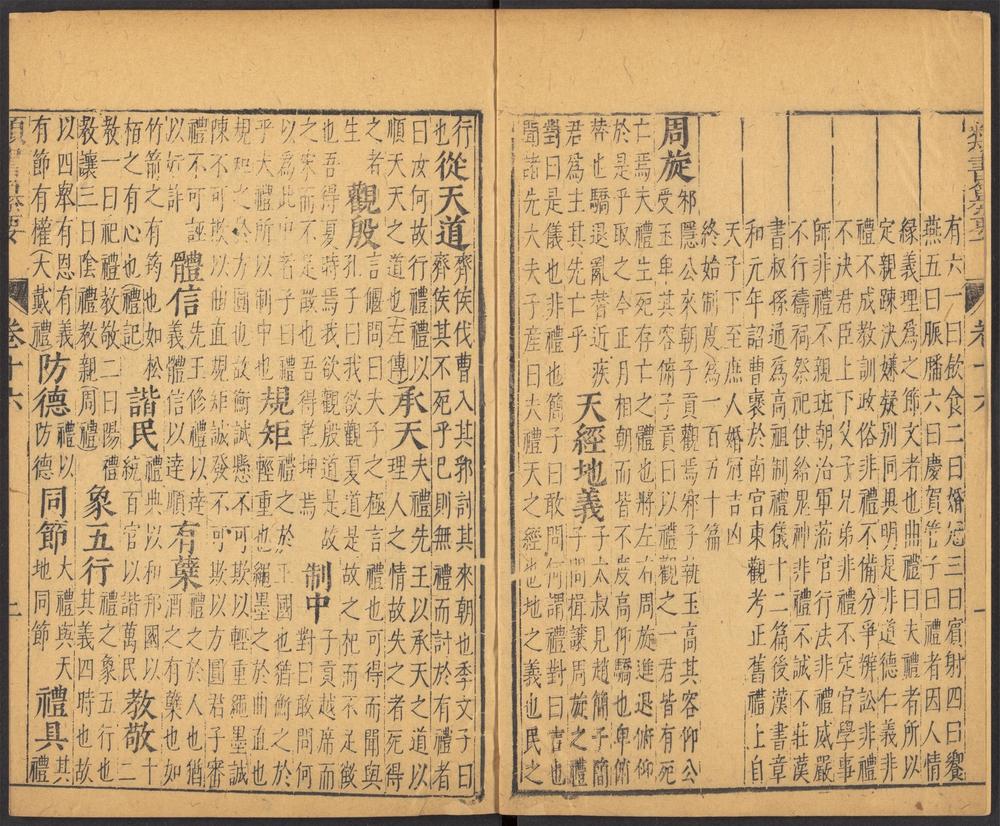 類書纂要 卷十六 一
有六一曰飲食二曰婚冠三曰賓射四曰饗
燕五曰脤膰六曰慶賀管子曰禮者因人情
緣義理爲之節文者也曲禮曰夫禮者所以
定親踈決嫌疑别同異明是非道德仁義非
禮不成教訓政俗非禮不備分爭辨訟非禮
不决君臣上下父子兄弟非禮不定官學事
師非禮不親班朝治軍蒞官行法非禮威嚴
不行禱祠祭祀供給鬼神非禮不誠不莊漢
書叔孫通爲高祖制禮儀十二篇後漢書章
和元年詔曹褒於南宫東觀考正舊禮上自
天子下至庶人婚冠吉凶
終始制度爲一百五十篇
周旋 邾隱公來朝子貢觀焉邾子執玉高其容仰公
受玉卑其容俯子貢曰以禮觀之二君皆有死
亡焉夫禮生死存亡之體也將左右周旋進退俯仰
於是乎取之今正月相朝而皆不度高仰驕也卑俯
替也驕近亂替近疾
君爲主其先亡乎
天經地義 子太叔見趙簡子簡
子問揖讓周旋之禮
對曰是儀也非禮也簡子曰敢問何謂禮對曰吉也
聞諸先大夫子産曰夫禮天之經也地之義也民之
行
也
從天道 齊侯伐曹入其郛討其來朝也季文子曰
齊侯其不死乎已則無禮而討於有禮者
曰汝何故行禮禮以
順天天之道也左傳
承天 夫禮先王以承天之道以
理人之情故失之者死得
之者
生
觀殷 言偃問曰夫子之極言禮也可得而聞與
孔子曰我欲觀夏道是故之杞而不足徵
也吾得夏時焉我欲觀殷道是故
之宋而不足徵也吾得乾坤焉
制中 子貢越席而
對曰敢問何
以爲此中者子曰禮
乎夫禮所以制中也
規矩 禮之於正國也猶衡之於
輕重也繩墨之於曲直也
規矩之於方圓也故衡誠懸不可欺以輕重繩墨誠
陳不可欺以曲直規矩誠發不可欺以方圓君子審
禮不可誣
以奸詐
體信 先王修禮以達
義體信以逹順
有蘖 禮之於人也猶
酒之有蘖也如
竹箭之有筠也如松
栢之有心也禮記
諧民 禮典以和邦國以
統百官以諧萬民
教敬 十
二
教一曰祀禮教敬二曰陽禮
教讓三曰陰禮教親周禮
象五行 象五行也
其義四時也故
以四舉有恩有義
有節有權大戴禮
防德 禮以
防德
同節 大禮與天
地同節
禮具 其
禮
類書纂要 卷十六 上